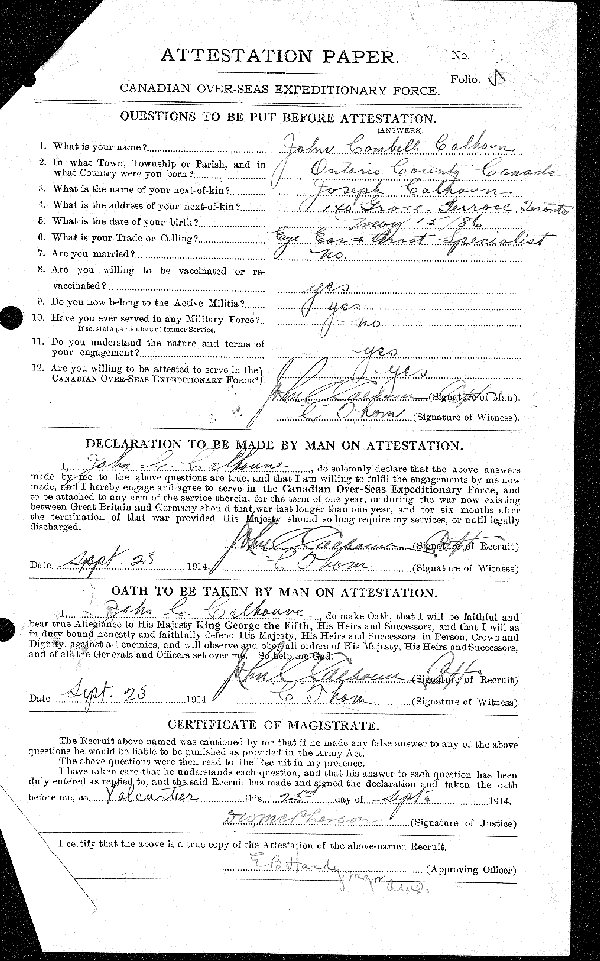 ATTESTATION PAPER.
No.
Folio.
CANADIAN OVER-SEAS EXPEDITIONARY FORCE.
QUESTIONS TO BE PUT BEFORE ATTESTATION.
(ANSWERS)
1. What is your name? John Cambell Calhoun
2. In what Town, Township or Parish, and in
what Country were you born? Ontario County Canada
3. What is the name of your next-of-kin? Joseph Calhoun
4. What is the address of your next-of-kin? Toronto
5. What is the date of your birth? 12/86
6. What is your Trade or Calling? Eye Ear & Throat Specialist
7. Are you married? no
8. Are you willing to be vaccinated or re-
vaccinated? yes
9. Do you now belong to the Active Militia? yes
10. Have you ever served in any Military Force? no
If so, state particulars of former Service.
11. Do you understand the nature and terms of
your engagement? yes
12. Are you willing to be attested to serve in the
CANADIAN OVER-SEAS EXPEDITIONARY FORCE? yes
John C Calhoun Capt (Signature of Man).
C Thom (Signature of Witness).
DECLARATION TO BE MADE BY MAN ON ATTESTATION.
I, John C. Calhoun, do solemnly declare that the above answers
made by me to the above questions are true, and that I am willing to fulfil the engagements by me now
made, and I hereby engage and agree to serve in the Canadian Over-Seas Expeditionary Force, and
to be attached to any arm of the service therein, for the term of one year, or during the war now existing
between Great Britain and Germany should that war last longer than one year, and for six months after
the termination of that war provided His Majesty should so long require my services, or until legally
discharged.
John C Calhoun Capt (Signature of Recruit)
Date Sept 25 1914. C Thom (Signature of Witness)
OATH TO BE TAKEN BY MAN ON ATTESTATION.
I, John C. Calhoun, do make Oath, that I will be faithful and
bear true Allegiance to His Majesty King George the Fifth, His Heirs and Successors, and that I will as
in duty bound honestly and faithfully defend His Majesty, His Heirs and Successors, in Person, Crown and
Dignity, against all enemies, and will observe and obey all orders of His Majesty, His Heirs and Successors,
and of all the Generals and Officers set over me. So help me God.
John C Calhoun Capt (Signature of Recruit)
Date Sept. 25 1914 C Thom (Signature of Witness)
CERTIFICATE OF MAGISTRATE.
The Recruit above named was cautioned by me that if he made any false answer to any of the above
questions he would be liable to be punished as provided in the Army Act.
The above questions were then read to the Recruit in my presence.
I have taken care that he understands each question, and that his answer to each question has been
duly entered as replied to, and the said Recruit has made and signed the declaration and taken the oath
before me, at Valcartier this 25 day of Sept 1914.
(Signature of Justice)
I certify that the above is a true copy of the Attestation of the above-named Recruit.
E B Hardy (Approving Officer)